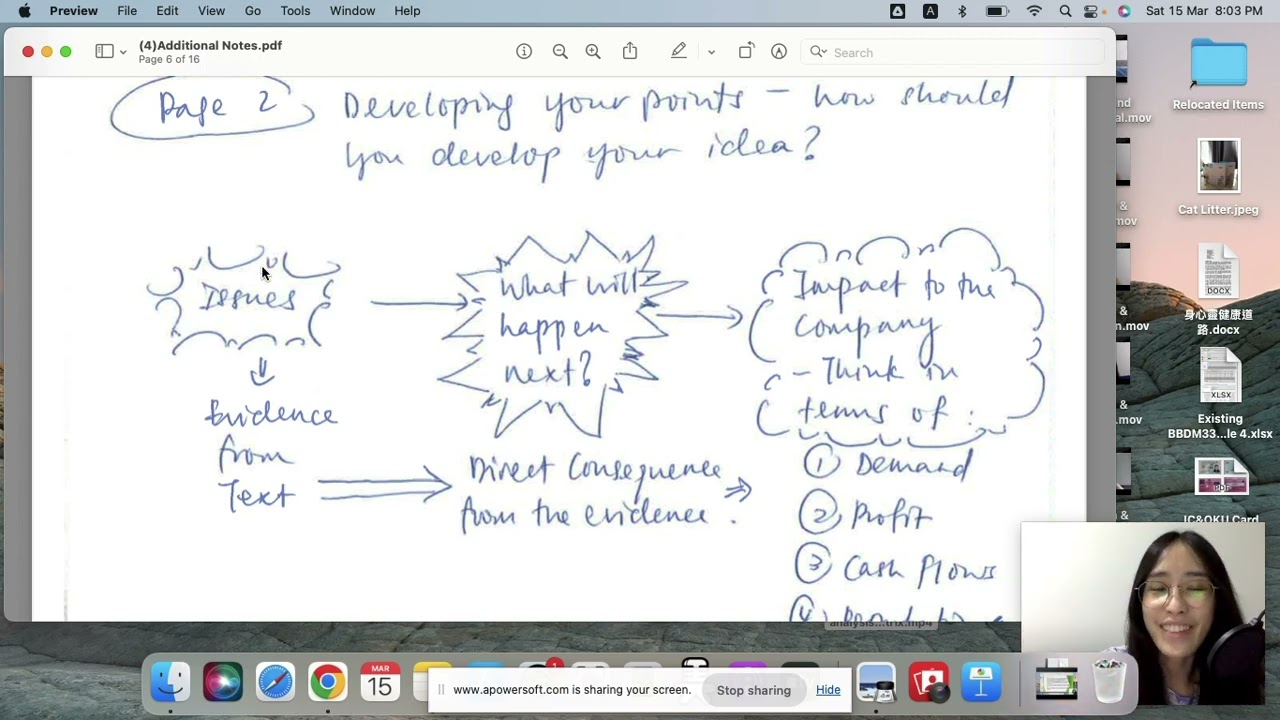 Preview File Edit View Go Tools Window Help
A
Sat 15 Mar 8:03 PM
(4)Additional Notes.pdf
Page 6 of 16
Search
Page 2
Developing your points - how should
you develop your idea?
Issues
Evidence
from
Text
What will
happen
next?
Direct Consequence
from the evidence.
Impact to the
Company
- Think in
terms of:
① Demand
② Profit
③ Cash Flows
nd
al.mov
&
mov
n.mov
&
.mov
&
Relocated Items
Cat Litter.jpeg
DOCX
身心靈健康道
路.docx
XLSX
Existing
BBDM33...le 4.xlsx
PDF
IC&OKU Card
analysis...trix.mp4
MAR
15
1
www.apowersoft.com is sharing your screen.
Stop sharing
Hide